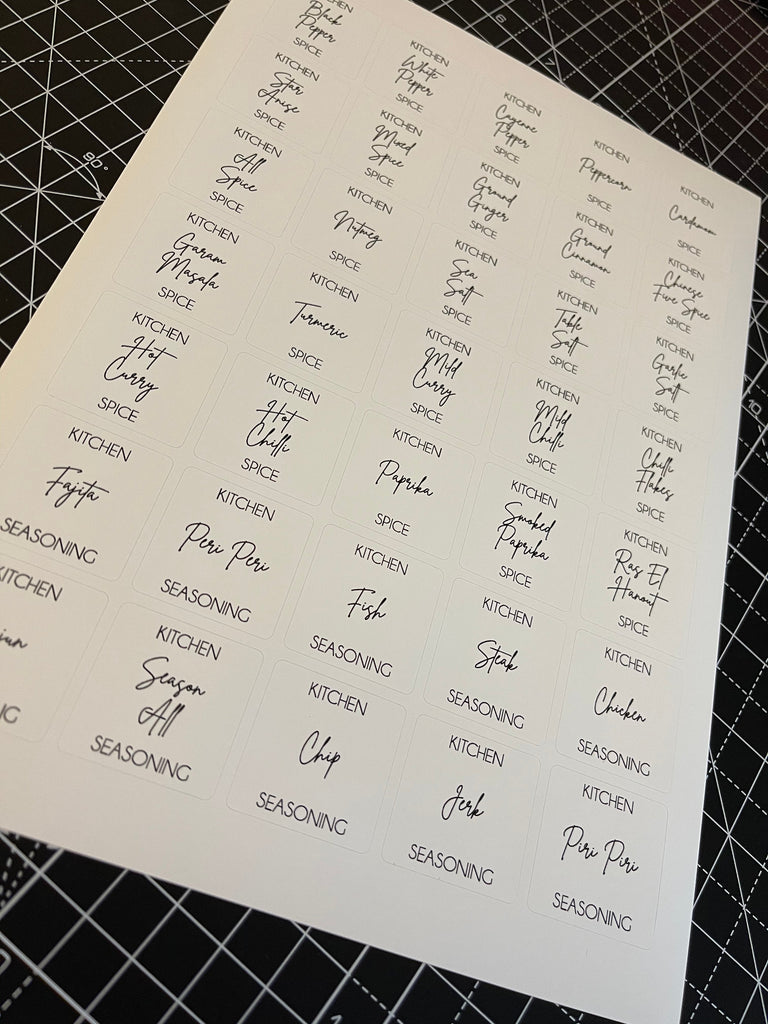 Black
Pepper
SPICE
KITCHEN
White
Pepper
SPICE
KITCHEN
Cayenne
Pepper
SPICE
KITCHEN
Peppercorn
SPICE
KITCHEN
Cardamom
SPICE
KITCHEN
Star
Anise
SPICE
KITCHEN
Mixed
Spice
SPICE
KITCHEN
Ground
Ginger
SPICE
KITCHEN
Ground
Cinnamon
SPICE
KITCHEN
Chinese
Five Spice
SPICE
KITCHEN
All
Spice
SPICE
KITCHEN
Nutmeg
SPICE
KITCHEN
Sea
Salt
SPICE
KITCHEN
Table
Salt
SPICE
KITCHEN
Garlic
Salt
SPICE
KITCHEN
Garam
Masala
SPICE
KITCHEN
Turmeric
SPICE
KITCHEN
Mild
Curry
SPICE
KITCHEN
Mild
Chilli
SPICE
KITCHEN
Chilli
Flakes
SPICE
KITCHEN
Hot
Curry
SPICE
KITCHEN
Hot
Chilli
SPICE
KITCHEN
Paprika
SPICE
KITCHEN
Smoked
Paprika
SPICE
KITCHEN
Ras El
Hanout
SPICE
KITCHEN
Fajita
SEASONING
KITCHEN
Peri Peri
SEASONING
KITCHEN
Fish
SEASONING
KITCHEN
Steak
SEASONING
KITCHEN
Chicken
SEASONING
KITCHEN
Season
All
SEASONING
KITCHEN
Chip
SEASONING
KITCHEN
Jerk
SEASONING
KITCHEN
Piri Piri
SEASONING